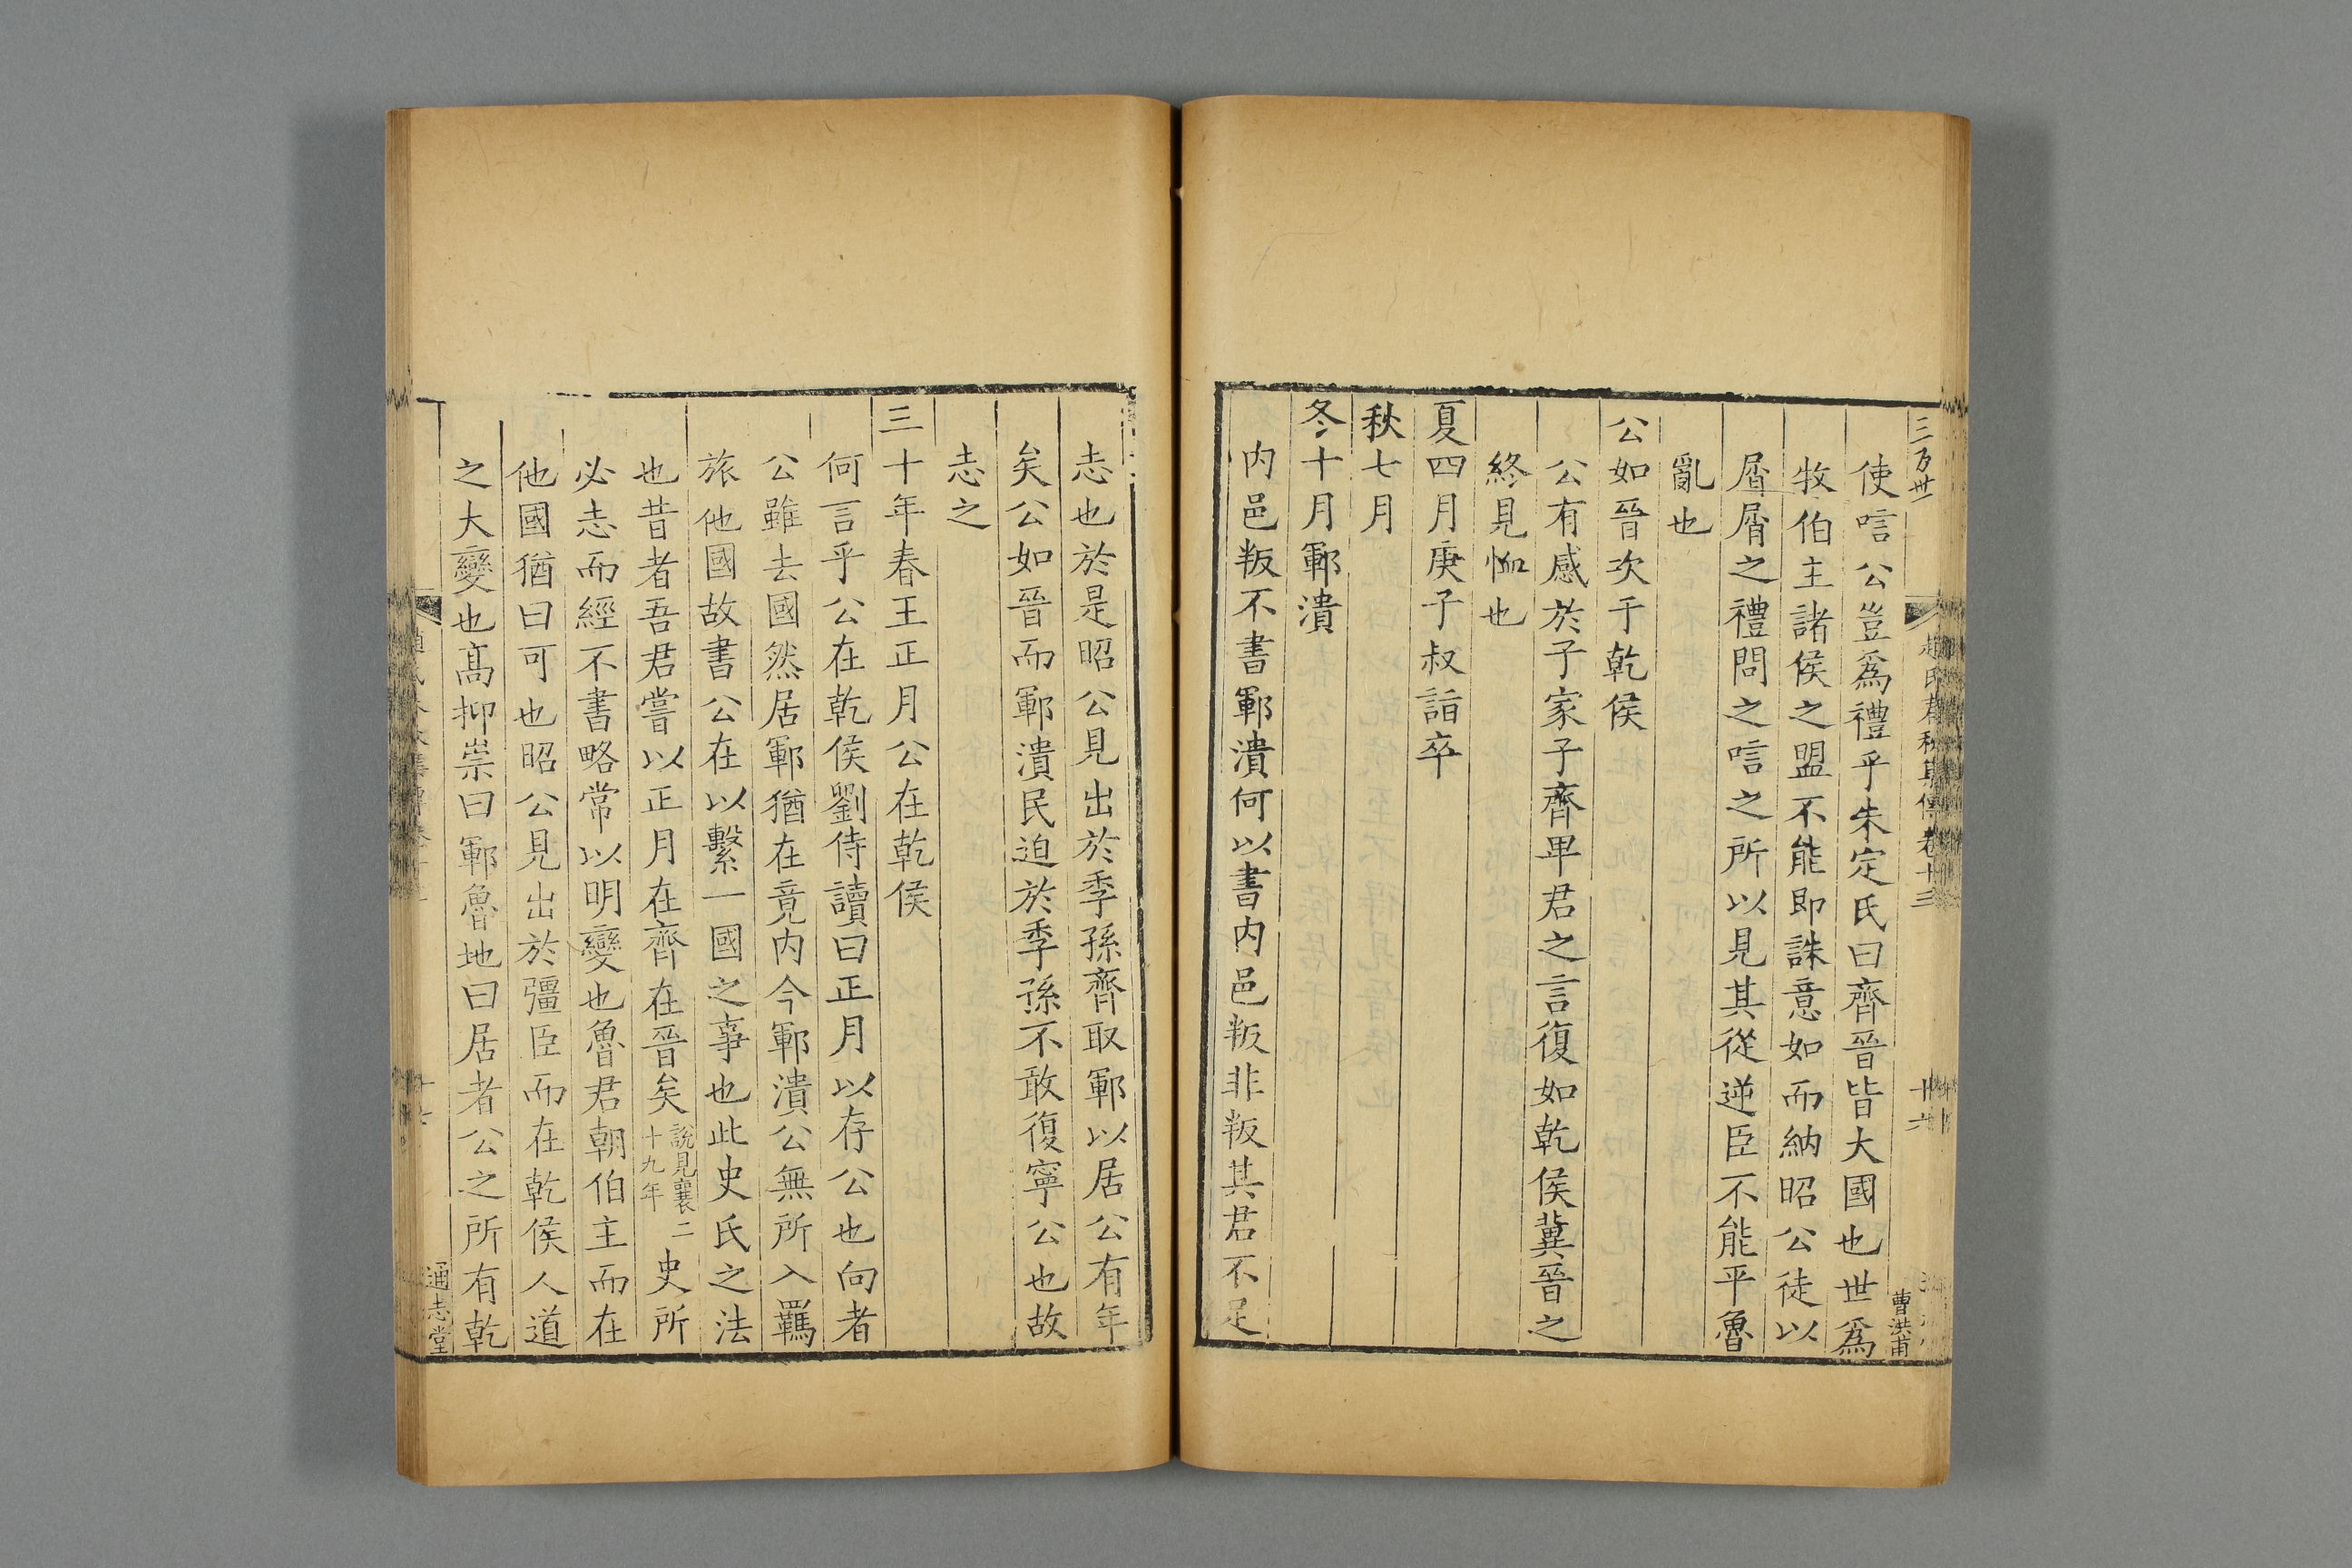 三百廿
趙氏春秋集傳卷十三
廿六
曹洪甫
使唁公豈爲禮乎朱定氏曰齊晉皆大國也世爲
牧伯主諸侯之盟不能即誅意如而納昭公徒以
屑屑之禮問之唁之所以見其從逆臣不能平魯
亂也
公如晉次于乾侯
公有感於子家子齊卑君之言復如乾侯冀晉之
終見恤也
夏四月庚子叔詣卒
秋七月
冬十月鄆潰
内邑叛不書鄆潰何以書内邑叛非叛其君不足
志也於是昭公見出於季孫齊取鄆以居公有年
矣公如晉而鄆潰民迫於季孫不敢復寧公也故
志之
三十年春王正月公在乾侯
何言乎公在乾侯劉侍讀曰正月以存公也向者
公雖去國然居鄆猶在竟内今鄆潰公無所入羈
旅他國故書公在以繫一國之事也此史氏之法
也昔者吾君嘗以正月在齊在晉矣說見襄二十九年史所
必志而經不書略常以明變也魯君朝伯主而在
他國猶曰可也昭公見出於彊臣而在乾侯人道
之大變也髙抑崇曰鄆魯地曰居者公之所有乾
通志堂